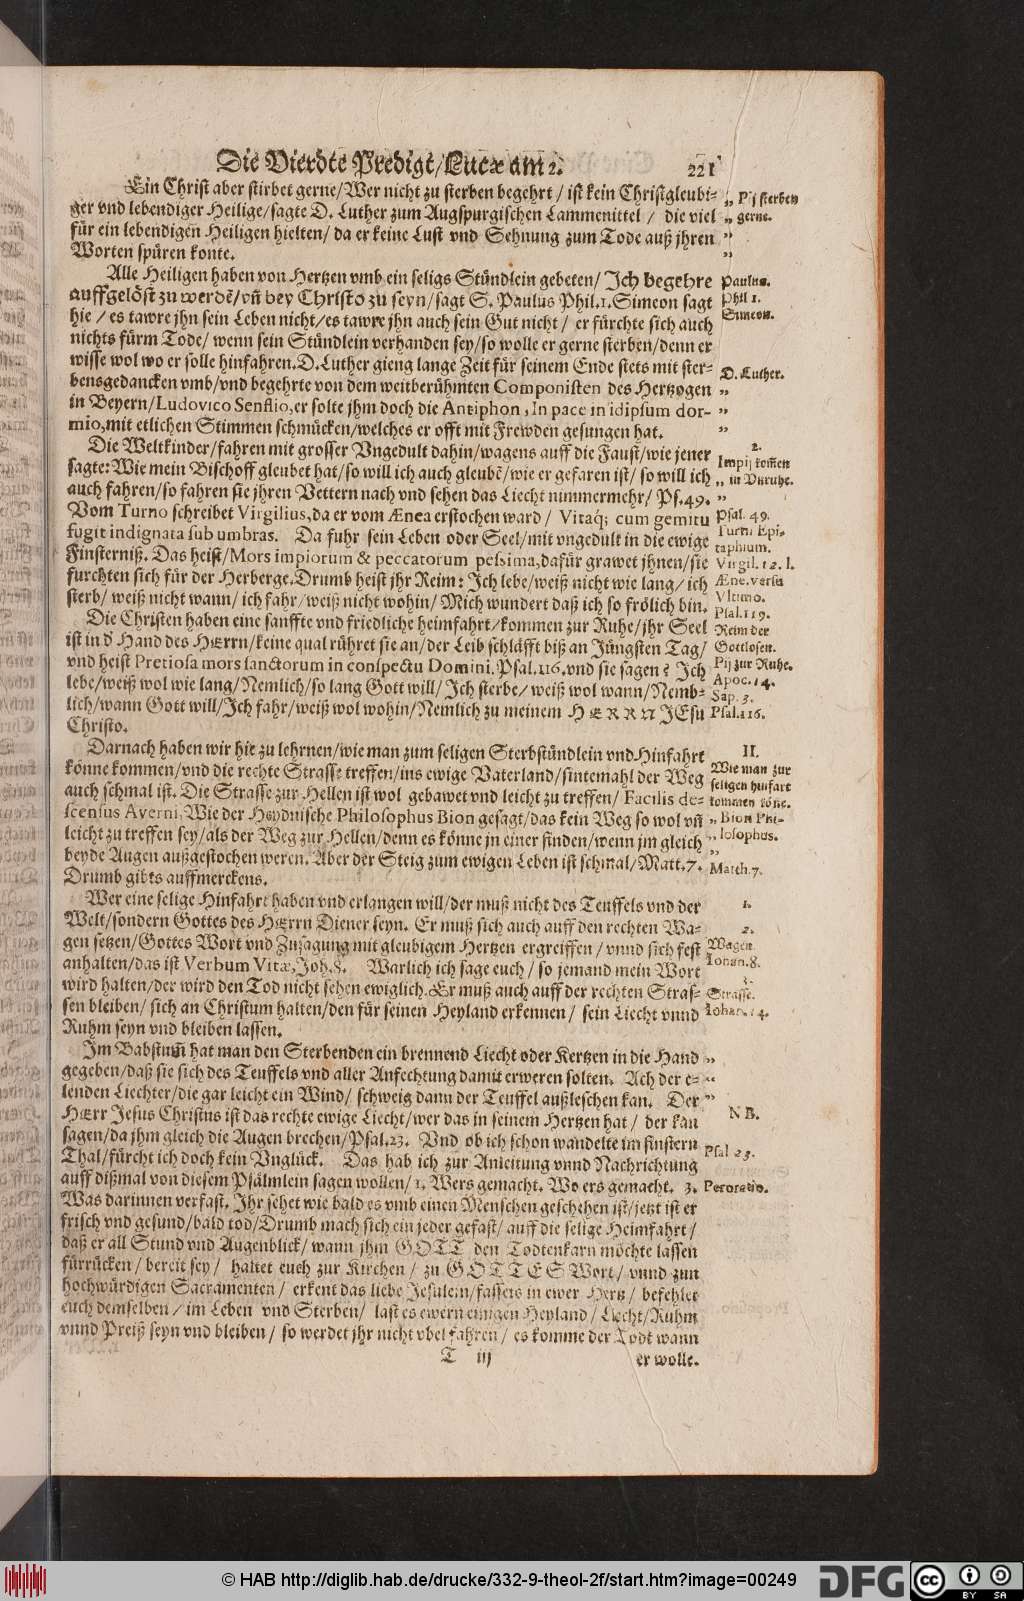 Die Vierdte Predigt/Lucæ am 2. 221
Ein Christ aber stirbet gerne/Wer nicht zu sterben begehrt/ ist kein Christgleubi-
ger vnd lebendiger Heilige/sagte D. Luther zum Augspurgischen Lammenittel/ die viel
für ein lebendigen Heiligen hielten/ da er keine Lust vnd Sehnung zum Tode auß jhren
Worten spüren konte.
„ Pij sterben
„ gerne.
„
„
Alle Heiligen haben von Hertzen vmb ein seligs Stündlein gebeten/ Jch begehre
auffgelöst zu werdē/vñ bey Christo zu seyn/sagt S. Paulus Phil.1. Simeon sagt
hie/es tawre jhn sein Leben nicht/es tawre jhn auch sein Gut nicht/ er fürchte sich auch
nichts fürm Tode/ wenn sein Stündlein verhanden sey/so wolle er gerne sterben/denn er
wisse wol wo er solle hinfahren. D. Luther gieng lange Zeit für seinem Ende stets mit ster-
bensgedancken vmb/vnd begehrte von dem weitberühmten Componisten des Hertzogen
in Beyern/Ludovico Senflio, er solte jhm doch die Antiphon, In pace in idipsum dor-
mio, mit etlichen Stimmen schmücken/welches er offt mit Frewden gesungen hat.
Paulus.
Phil 1.
Simeon.
D. Luther.
„
„
„
Die Weltkinder/fahren mit grosser Vngedult dahin/wagens auff die Faust/wie jener
sagte: Wie mein Bischoff gleubet hat/so will ich auch gleubē/wie er gefaren ist/ so will ich
auch fahren/so fahren sie jhren Vettern nach vnd sehen das Liecht nimmermehr/ Ps.49.
Vom Turno schreibet Virgilius, da er vom Ænea erstochen ward/ Vitaq́; cum gemitu
fugit indignata sub umbras. Da fuhr sein Leben oder Seel/mit vngedult in die ewige
Finsterniß. Das heist/Mors impiorum & peccatorum pessima, dafür grawet jhnen/sie
furchten sich für der Herberge. Drumb heist jhr Reim: Jch lebe/weiß nicht wie lang/ ich
sterb/ weiß nicht wann/ ich fahr/weiß nicht wohin/ Mich wundert daß ich so frölich bin.
2.
Impij kom̃en
„ in Vnruhe.
„
Psal. 49.
Turni Epi-
taphium.
Virgil. 12. l.
Æne. versu
Vltimo.
Psal.119.
Reim der
Gottlosen.
Die Christen haben eine sanffte vnd friedliche heimfahrt/kommen zur Ruhe/jhr Seel
ist in d' Hand des HErrn/keine qual rühret sie an/der Leib schläfft biß an Jüngsten Tag/
vnd heist Pretiosa mors sanctorum in conspectu Domini. Psal. 116. vnd sie sagen? Jch
lebe/weiß wol wie lang/Nemlich/so lang Gott will/ Jch sterbe/ weiß wol wann/Nemb-
lich/wann Gott will/Jch fahr/weiß wol wohin/Nemlich zu meinem HERRN JEsu
Christo.
Pij zur Ruhe.
Apoc. 14.
Sap. 3.
Psal.116.
Darnach haben wir hie zu lehrnen/wie man zum seligen Sterbstündlein vnd Hinfahrt
könne kommen/vnd die rechte Strasse treffen/ins ewige Vaterland/sintemahl der Weg
auch schmal ist. Die Strasse zur Hellen ist wol gebawet vnd leicht zu treffen/ Facilis de-
scensus Averni, Wie der Heydnische Philosophus Bion gesagt/das kein Weg so wol vñ
leicht zu treffen sey/als der Weg zur Hellen/denn es könne jn einer finden/wenn jm gleich
beyde Augen außgestochen weren. Aber der Steig zum ewigen Leben ist schmal/Matt.7.
Drumb gibts auffmerckens.
II.
Wie man zur
seligen hinfart
kommen köñe.
„ Bion Phi-
„ losophus.
„
Matth.7.
Wer eine selige Hinfahrt haben vnd erlangen will/der muß nicht des Teuffels vnd der
Welt/sondern Gottes des HErrn Diener seyn. Er muß sich auch auff den rechten Wa-
gen setzen/Gottes Wort vnd Zusagung mit gleubigem Hertzen ergreiffen/ vnnd sich fest
anhalten/das ist Verbum Vitæ, Joh.8. Warlich ich sage euch/ so jemand mein Wort
wird halten/der wird den Tod nicht sehen ewiglich. Er muß auch auff der rechten Stras-
sen bleiben/ sich an Christum halten/den für seinen Heyland erkennen/ sein Liecht vnnd
Ruhm seyn vnd bleiben lassen.
1.
2.
Wagen.
Iohan.8.
Strasse.
Iohan.14.
Jm Babstum̃ hat man den Sterbenden ein brennend Liecht oder Kertzen in die Hand
gegeben/daß sie sich des Teuffels vnd aller Anfechtung damit erweren solten. Ach der e-
lenden Liechter/die gar leicht ein Wind/ schweig dann der Teuffel außleschen kan. Der
HErr Jesus Christus ist das rechte ewige Liecht/wer das in seinem Hertzen hat/ der kan
sagen/da jhm gleich die Augen brechen/Psal.23. Vnd ob ich schon wandelte im finstern
Thal/fürcht ich doch kein Vnglück. Das hab ich zur Anleitung vnnd Nachrichtung
auff dißmal von diesem Psälmlein sagen wollen/ 1. Wers gemacht. Wo ers gemacht. 3.
Was darinnen verfast. Jhr sehet wie bald es vmb einen Menschen geschehen ist/jetzt ist er
frisch vnd gesund/bald tod/Drumb mach sich ein jeder gefast/ auff die selige Heimfahrt/
daß er all Stund vnd Augenblick/ wann jhm GOTT den Todtenkarn möchte lassen
fürrücken/ bereit sey/ haltet euch zur Kirchen/ zu GOTTES Wort/ vnnd zun
hochwürdigen Sacramenten/ erkent das liebe Jesulein/fassets in ewer Hertz/ befehlet
euch demselben/ im Leben vnd Sterben/ last es ewern einigen Heyland/ Liecht/Ruhm
vnnd Preiß seyn vnd bleiben/ so werdet jhr nicht vbel fahren/ es komme der Todt wann
„
„
„
NB.
Psal 23.
Peroratio.
T iij er wolle.
© HAB http://diglib.hab.de/drucke/332-9-theol-2f/start.htm?image=00249
DFG
CC BY SA